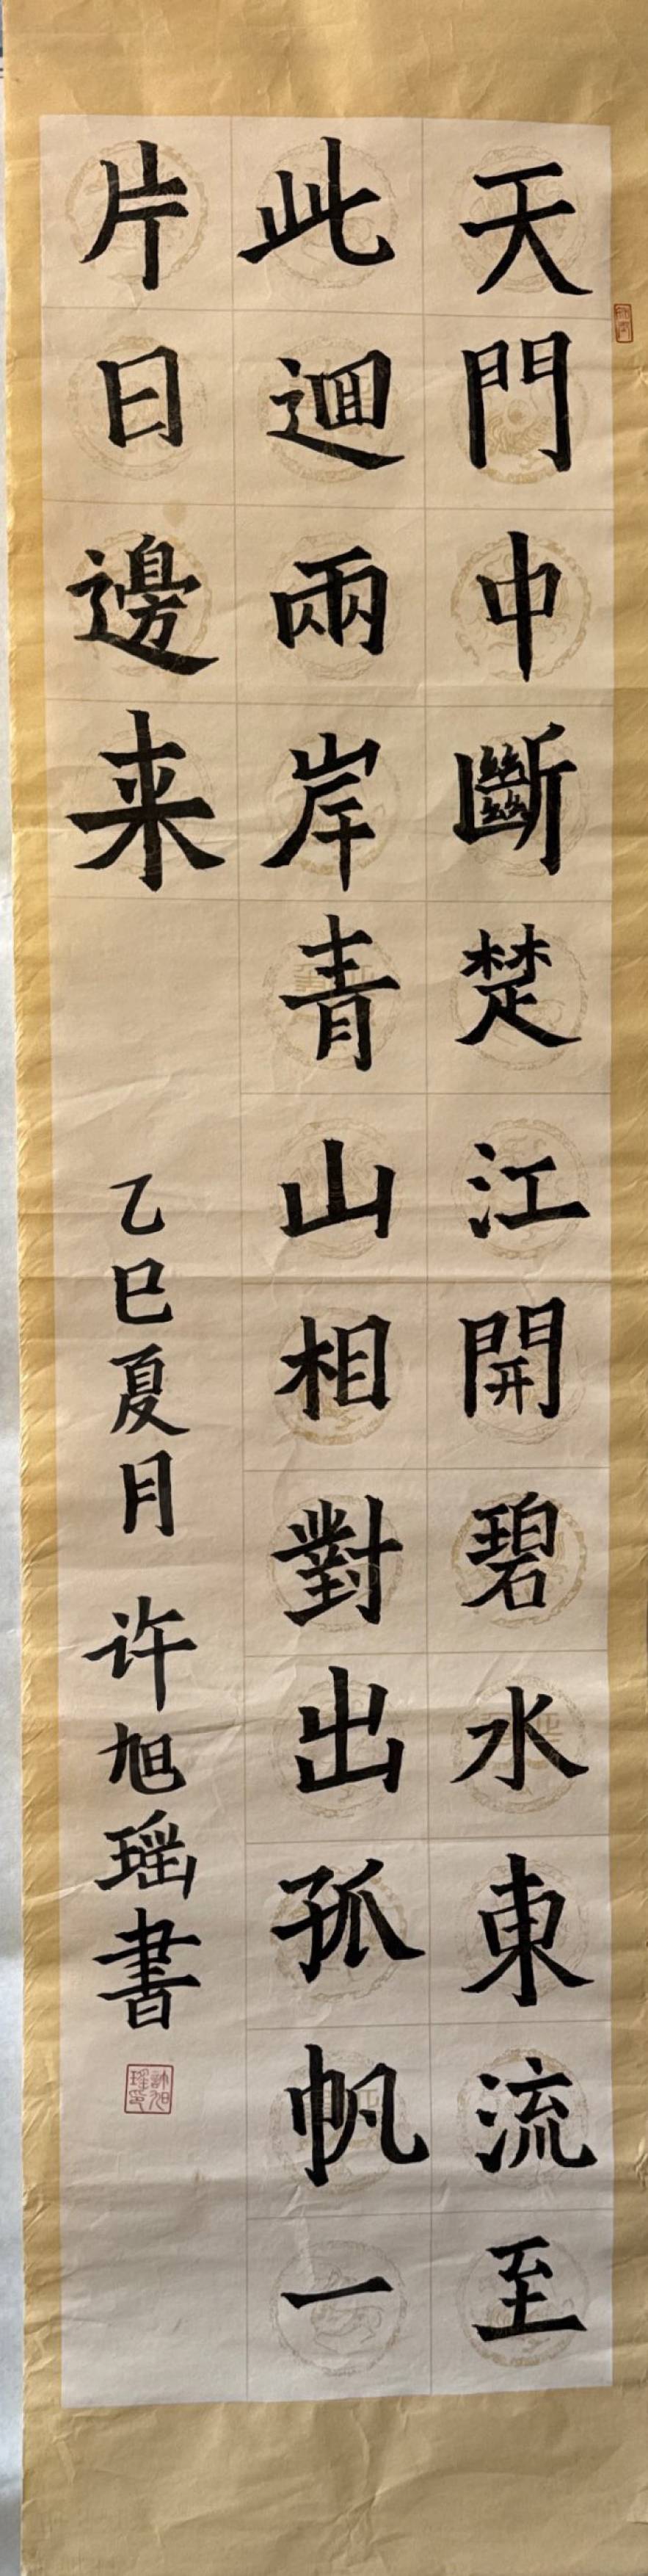 天門中斷楚江開碧水東流至
此迴兩岸青山相對出孤帆一
片日邊来
乙巳夏月 许旭瑶書
許旭瑤印